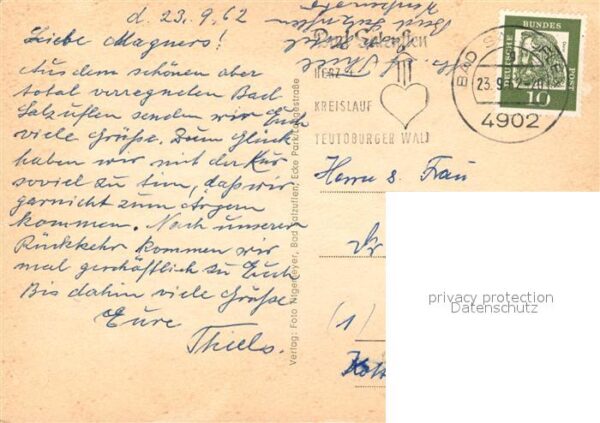 d. 23.9.62
Liebe Magners!
Aus dem schönen aber
total verregneten Bad
Salzuflen senden wir Euch
viele Grüße. Zum Glück
haben wir mit der Kur
soviel zu tun, daß wir
garnicht zum Ärgern
kommen. Nach unserer
Rückkehr kommen wir
mal geschäftlich zu Euch
Bis dahin viele Grüße
Eure
Thiels.
Verlag: Foto Nigemeyer, Bad Salzuflen, Ecke Park
Bad Salzuflen
HERZ
KREISLAUF
TEUTOBURGER WALD
BAD
23.9.62
4902
DEUTSCHE BUNDES POST
10
Herrn u. Frau
Dr
(1)
privacy protection
Datenschutz